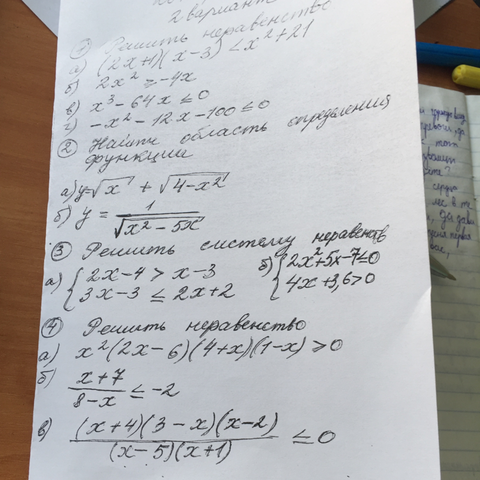 2 вариант
① Решить неравенство
а) (2x+1)(x-3) < x²+21
б) 2x² ≥ -4x
в) x³-64x ≤ 0
г) -x²-12x-100 ≤ 0
② Найти область определения
функции
а) y=√x + √4-x²
б) y = 1/√x²-5x
③ Решить систему неравенств
а) { 2x-4 > x-3 б) { 2x²+5x-7≤0
3x-3 ≤ 2x+2 4x+3,6>0
④ Решить неравенство
а) x²(2x-6)(4+x)(1-x) ≥ 0
б) x+7/8-x ≤ -2
в) (x+4)(3-x)(x-2)/(x-5)(x+1) ≤ 0